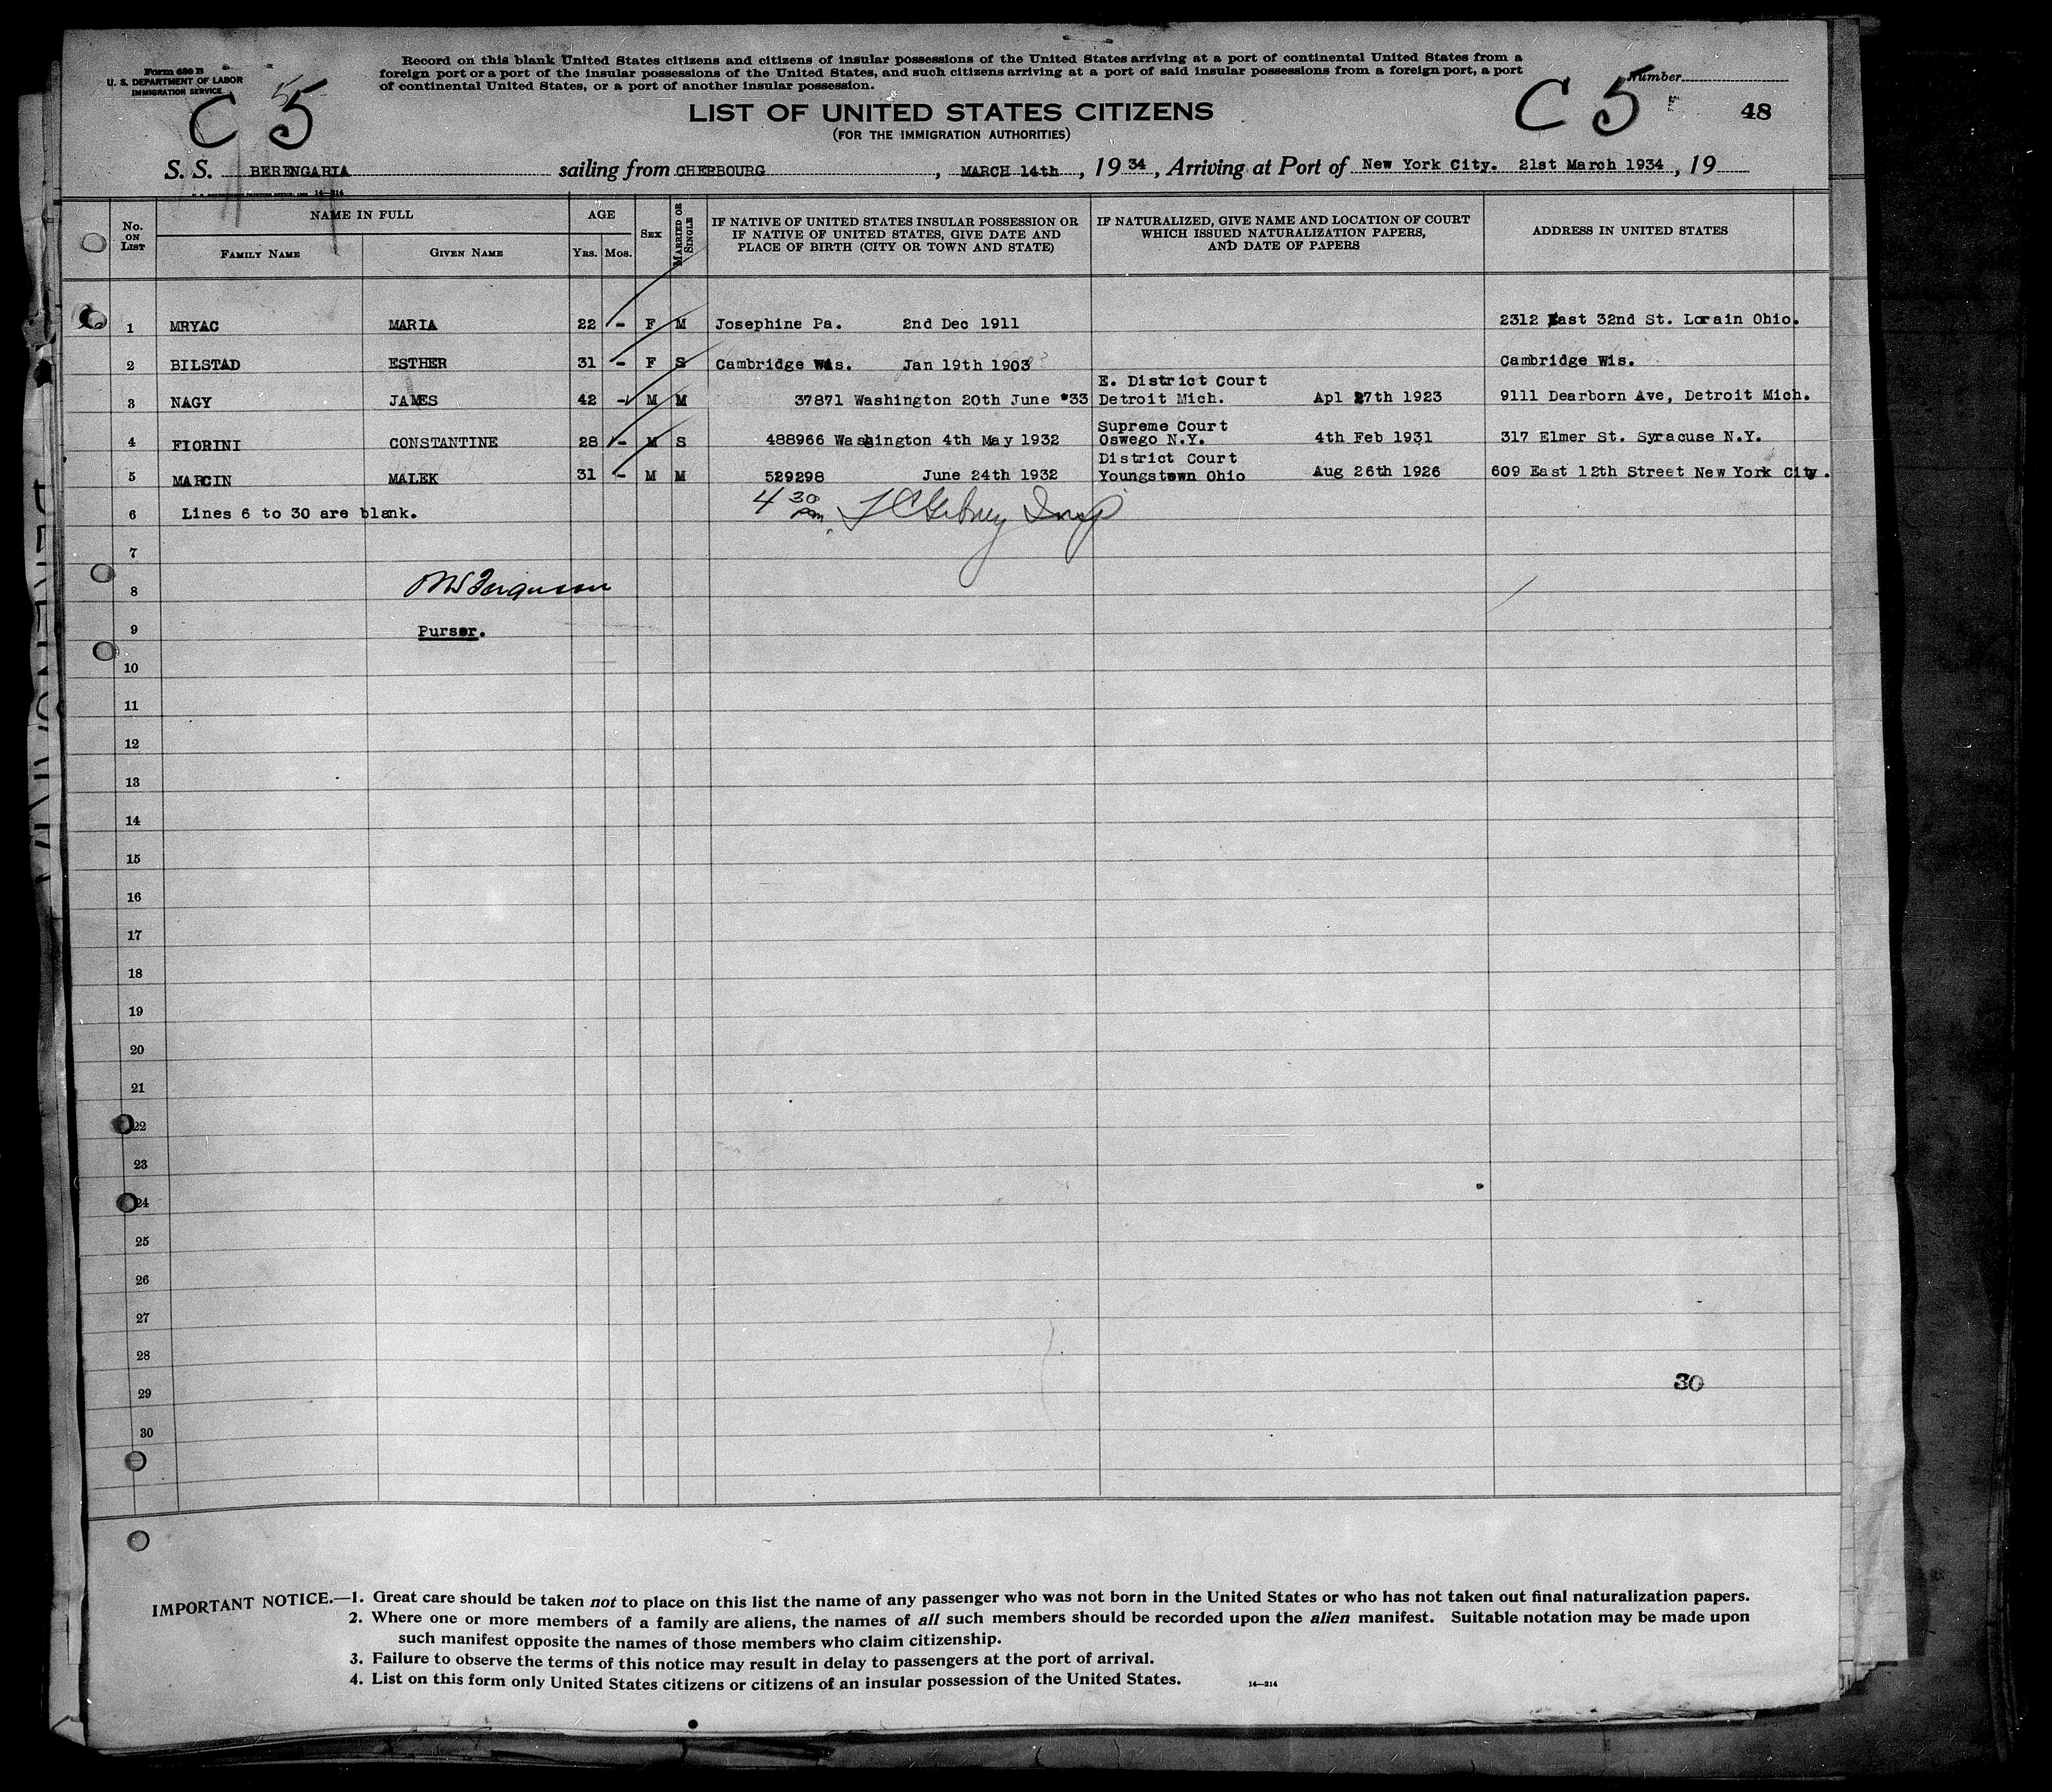 Form 630 B
U. S. DEPARTMENT OF LABOR
IMMIGRATION SERVICE
C 5
Record on this blank United States citizens and citizens of insular possessions of the United States arriving at a port of continental United States from a
foreign port or a port of the insular possessions of the United States, and such citizens arriving at a port of said insular possessions from a foreign port, a port
of continental United States, or a port of another insular possession.
Number
C 5
48
LIST OF UNITED STATES CITIZENS
(FOR THE IMMIGRATION AUTHORITIES)
S. S. BERENGARIA sailing from CHERBOURG, MARCH 14th, 1934, Arriving at Port of New York City. 21st March 1934, 19
14—214
No. ON LIST
NAME IN FULL
FAMILY NAME
GIVEN NAME
AGE
YRS. MOS.
SEX
MARRIED OR SINGLE
IF NATIVE OF UNITED STATES INSULAR POSSESSION OR
IF NATIVE OF UNITED STATES, GIVE DATE AND
PLACE OF BIRTH (CITY OR TOWN AND STATE)
IF NATURALIZED, GIVE NAME AND LOCATION OF COURT
WHICH ISSUED NATURALIZATION PAPERS,
AND DATE OF PAPERS
ADDRESS IN UNITED STATES
1 MRYAC MARIA 22 - F M Josephine Pa. 2nd Dec 1911 2312 East 32nd St. Lorain Ohio.
2 BILSTAD ESTHER 31 - F S Cambridge Wis. Jan 19th 1903 Cambridge Wis.
E. District Court
3 NAGY JAMES 42 - M M 37871 Washington 20th June '33 Detroit Mich. Apl 27th 1923 9111 Dearborn Ave, Detroit Mich.
Supreme Court
4 FIORINI CONSTANTINE 28 - M S 488966 Washington 4th May 1932 Oswego N.Y. 4th Feb 1931 317 Elmer St. Syracuse N.Y.
District Court
5 MARCIN MALEK 31 - M M 529298 June 24th 1932 Youngstown Ohio Aug 26th 1926 609 East 12th Street New York City.
4 30 pm
6 Lines 6 to 30 are blank.
7
8 Ferguson
9 Purser.
10
11
12
13
14
15
16
17
18
19
20
21
22
23
24
25
26
27
28
29
30
30
IMPORTANT NOTICE.—1. Great care should be taken not to place on this list the name of any passenger who was not born in the United States or who has not taken out final naturalization papers.
2. Where one or more members of a family are aliens, the names of all such members should be recorded upon the alien manifest. Suitable notation may be made upon
such manifest opposite the names of those members who claim citizenship.
3. Failure to observe the terms of this notice may result in delay to passengers at the port of arrival.
4. List on this form only United States citizens or citizens of an insular possession of the United States.
14—214